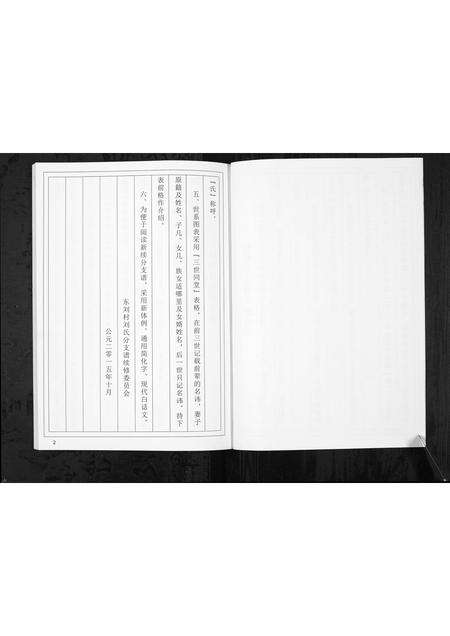 “氏”称呼。
五、世系图表采用“三世同堂”表格，在前三世记载前辈的名讳，妻子
原籍及姓名、子几、女几、族女适哪里及女婿姓名，后一世只记名讳，待下
表前格作介绍。
六、为便于阅读新续分支谱，采用新体例，通用简化字、现代白话文。
东刘村刘氏分支谱续修委员会
公元二零一五年十月
2